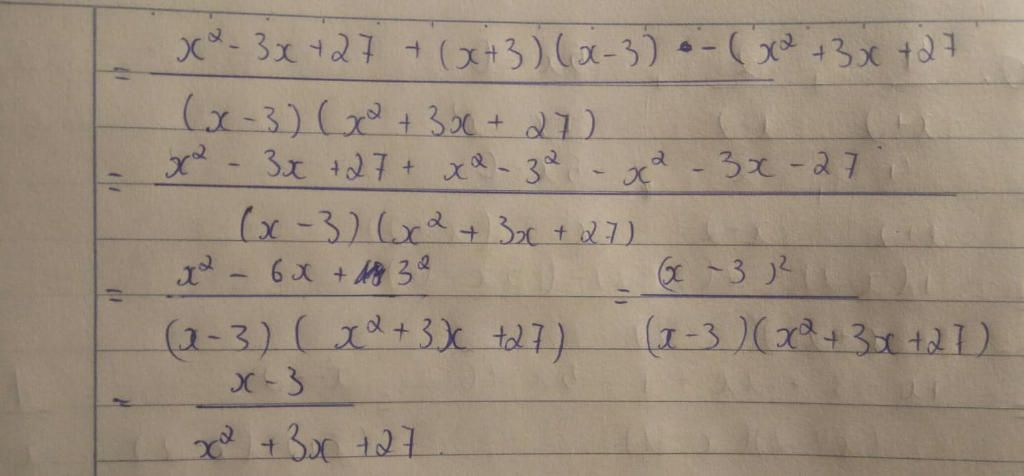 = (x² - 3x + 27 + (x+3)(x-3) - (x² + 3x + 27) / ((x-3)(x² + 3x + 27))
= (x² - 3x + 27 + x² - 3² - x² - 3x - 27) / ((x-3)(x² + 3x + 27))
= (x² - 6x + 3²) / ((x-3)(x² + 3x + 27)) = (x-3)² / ((x-3)(x² + 3x + 27))
= (x-3) / (x² + 3x + 27)